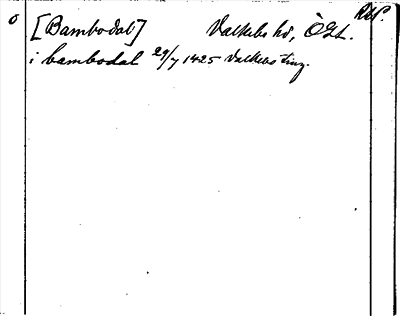 RAP.
o [Bambodal] Valkebo hd, ÖGL.
i bambodal 29/7 1425 Valkebs ting.